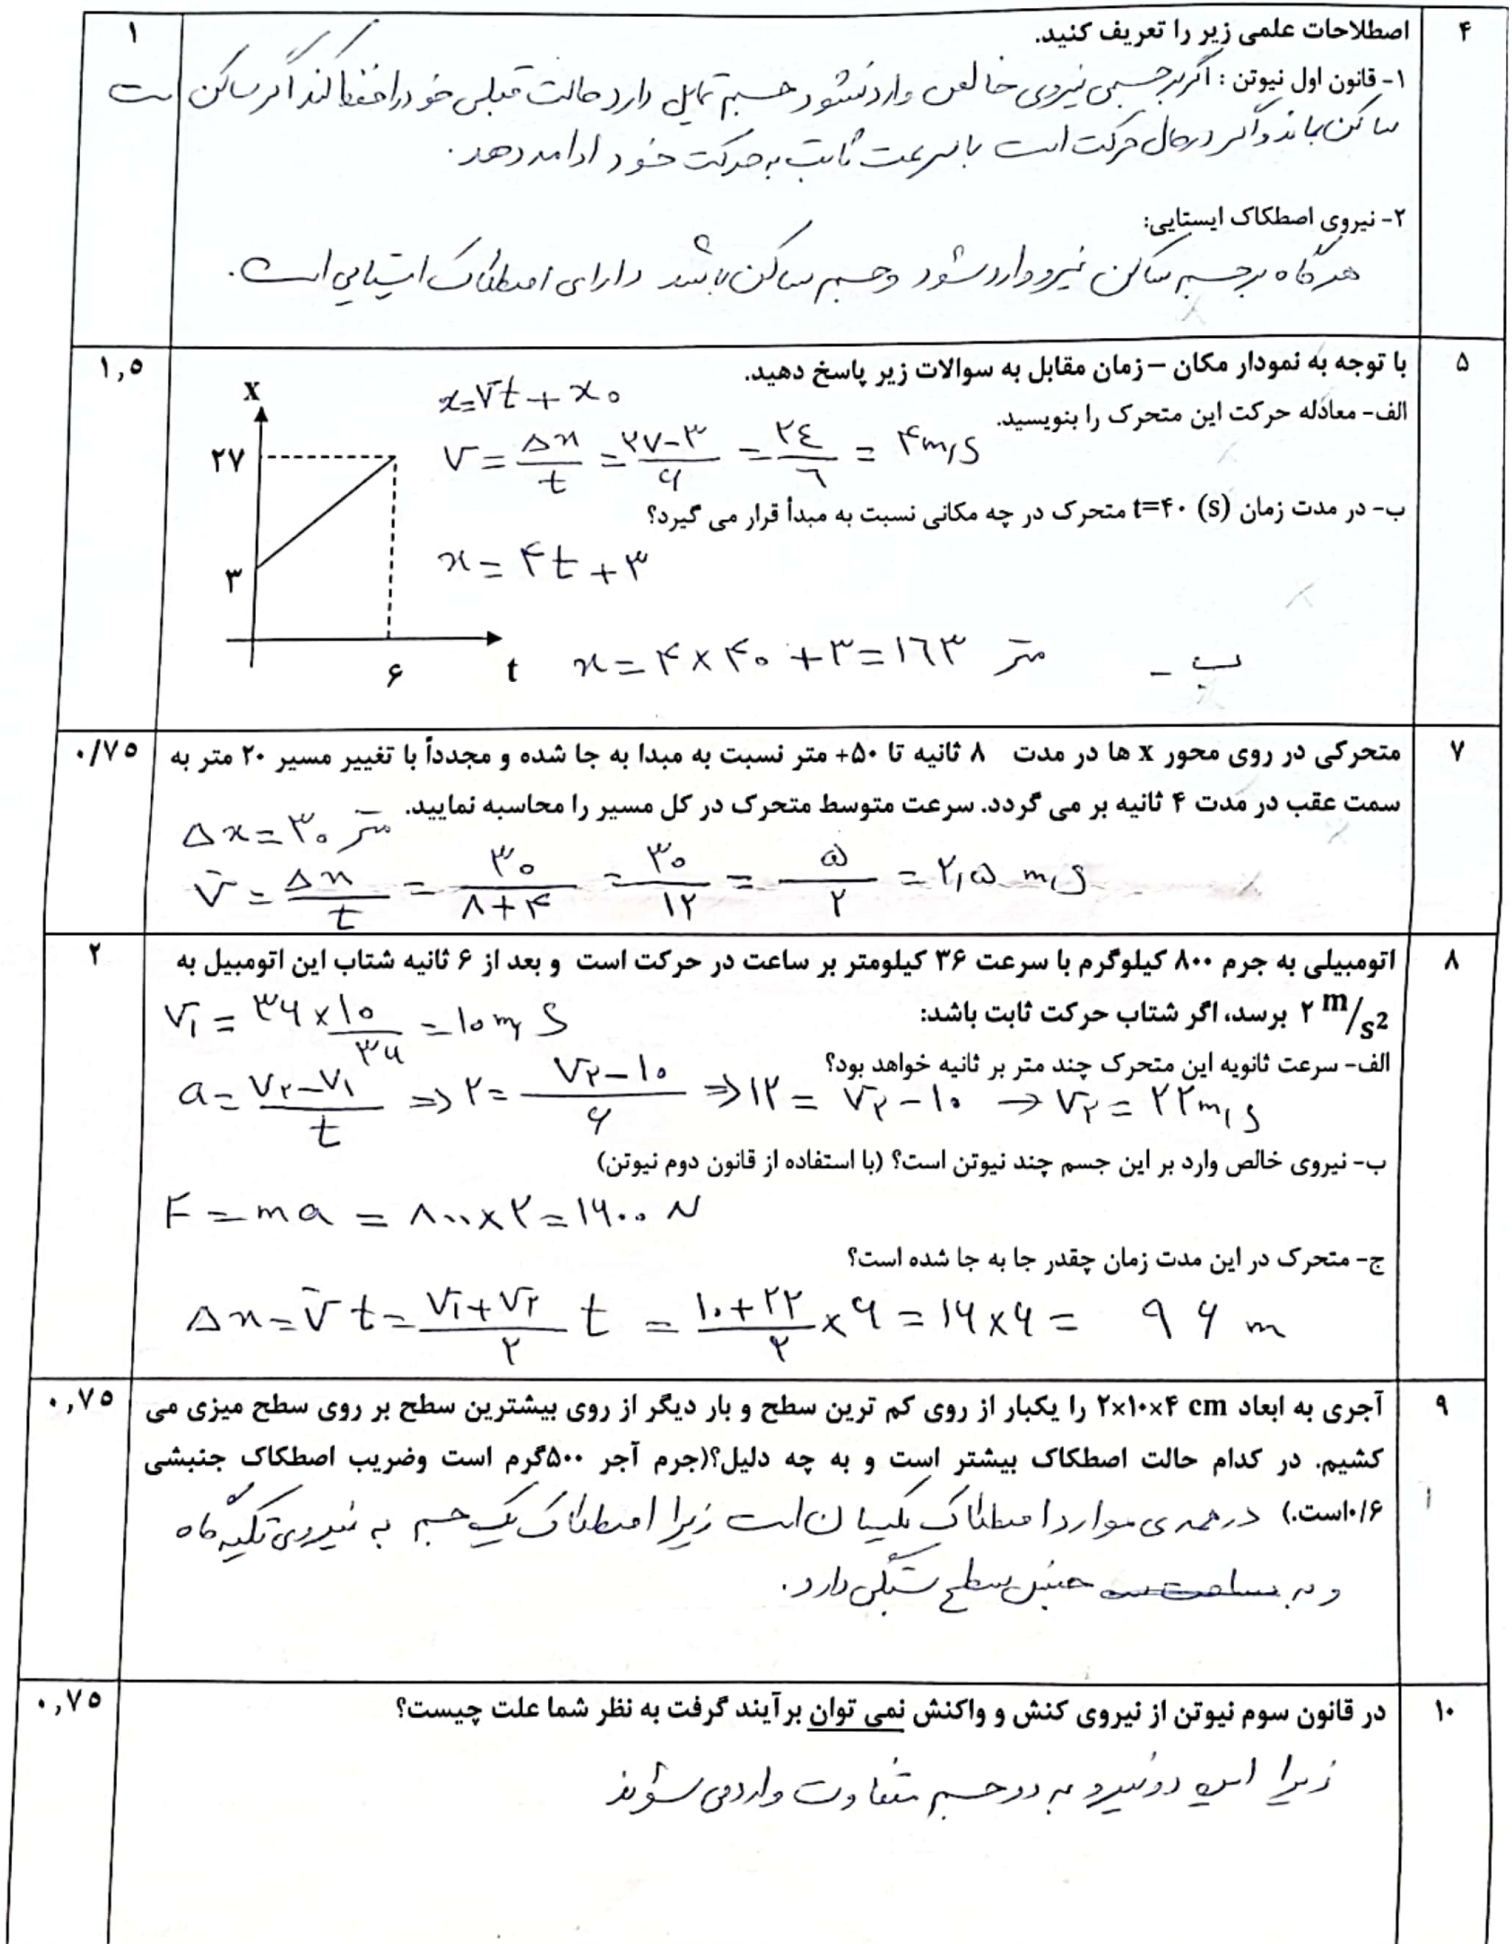 ۴
اصطلاحات علمی زیر را تعریف کنید.
۱
۱- قانون اول نیوتن : اگر برجسمی نیروی خالص وارد نشود جسم تمایل دارد حالت قبلی خود را حفظ کند اگر ساکن است
ساکن بماند و اگر درحال حرکت است با سرعت ثابت به حرکت خود ادامه دهد.
۲- نیروی اصطکاک ایستایی:
هرگاه برجسم ساکن نیرو وارد شود و جسم ساکن باشد دارای اصطکاک ایستایی است.
۵
با توجه به نمودار مکان – زمان مقابل به سوالات زیر پاسخ دهید.
۱,۵
الف- معادله حرکت این متحرک را بنویسید.
x=v̄t+x۰
V=Δx/t=۲۷-۳/۶=۲٤/٦=۴m/s
ب- در مدت زمان t=۴۰ (s) متحرک در چه مکانی نسبت به مبدأ قرار می گیرد؟
x=۴t+۳
ب-
x=۴×۴۰+۳=۱٦۳ متر
x
۲۷
۳
۶
t
۷
متحرکی در روی محور x ها در مدت ۸ ثانیه تا ۵۰+ متر نسبت به مبدا به جا شده و مجدداً با تغییر مسیر ۲۰ متر به
۰/۷۵
سمت عقب در مدت ۴ ثانیه بر می گردد. سرعت متوسط متحرک در کل مسیر را محاسبه نمایید.
Δx=۳۰ متر
v̄=Δx/t=۳۰/۸+۴=۳۰/۱۲=۵/۲=۲,۵ m/s
۸
اتومبیلی به جرم ۸۰۰ کیلوگرم با سرعت ۳۶ کیلومتر بر ساعت در حرکت است و بعد از ۶ ثانیه شتاب این اتومبیل به
۲
۲ m/s² برسد، اگر شتاب حرکت ثابت باشد:
V۱=۳۶×۱۰/۳۶=۱۰m/s
الف- سرعت ثانویه این متحرک چند متر بر ثانیه خواهد بود؟
a=V۲-V۱/t ⇒ ۲=V۲-۱۰/۶ ⇒ ۱۲=V۲-۱۰ → V۲=۲۲m/s
ب- نیروی خالص وارد بر این جسم چند نیوتن است؟ (با استفاده از قانون دوم نیوتن)
F=ma=۸۰۰×۲=۱۶۰۰ N
ج- متحرک در این مدت زمان چقدر جا به جا شده است؟
Δx=v̄t=V۱+V۲/۲ t=۱۰+۲۲/۲×۶=۱۶×۶= ۹۶ m
۹
آجری به ابعاد ۲×۱۰×۴ cm را یکبار از روی کم ترین سطح و بار دیگر از روی بیشترین سطح بر روی سطح میزی می
۰,۷۵
کشیم. در کدام حالت اصطکاک بیشتر است و به چه دلیل؟(جرم آجر ۵۰۰گرم است وضریب اصطکاک جنبشی
۰/۶است.) در همه ی موارد اصطکاک یکسان است زیرا اصطکاک یک جسم به نیروی تکیه گاه
و به جنس سطح بستگی دارد.
۱۰
در قانون سوم نیوتن از نیروی کنش و واکنش نمی توان برآیند گرفت به نظر شما علت چیست؟
۰,۷۵
زیرا این دو نیرو به دو جسم متفاوت وارد می شوند